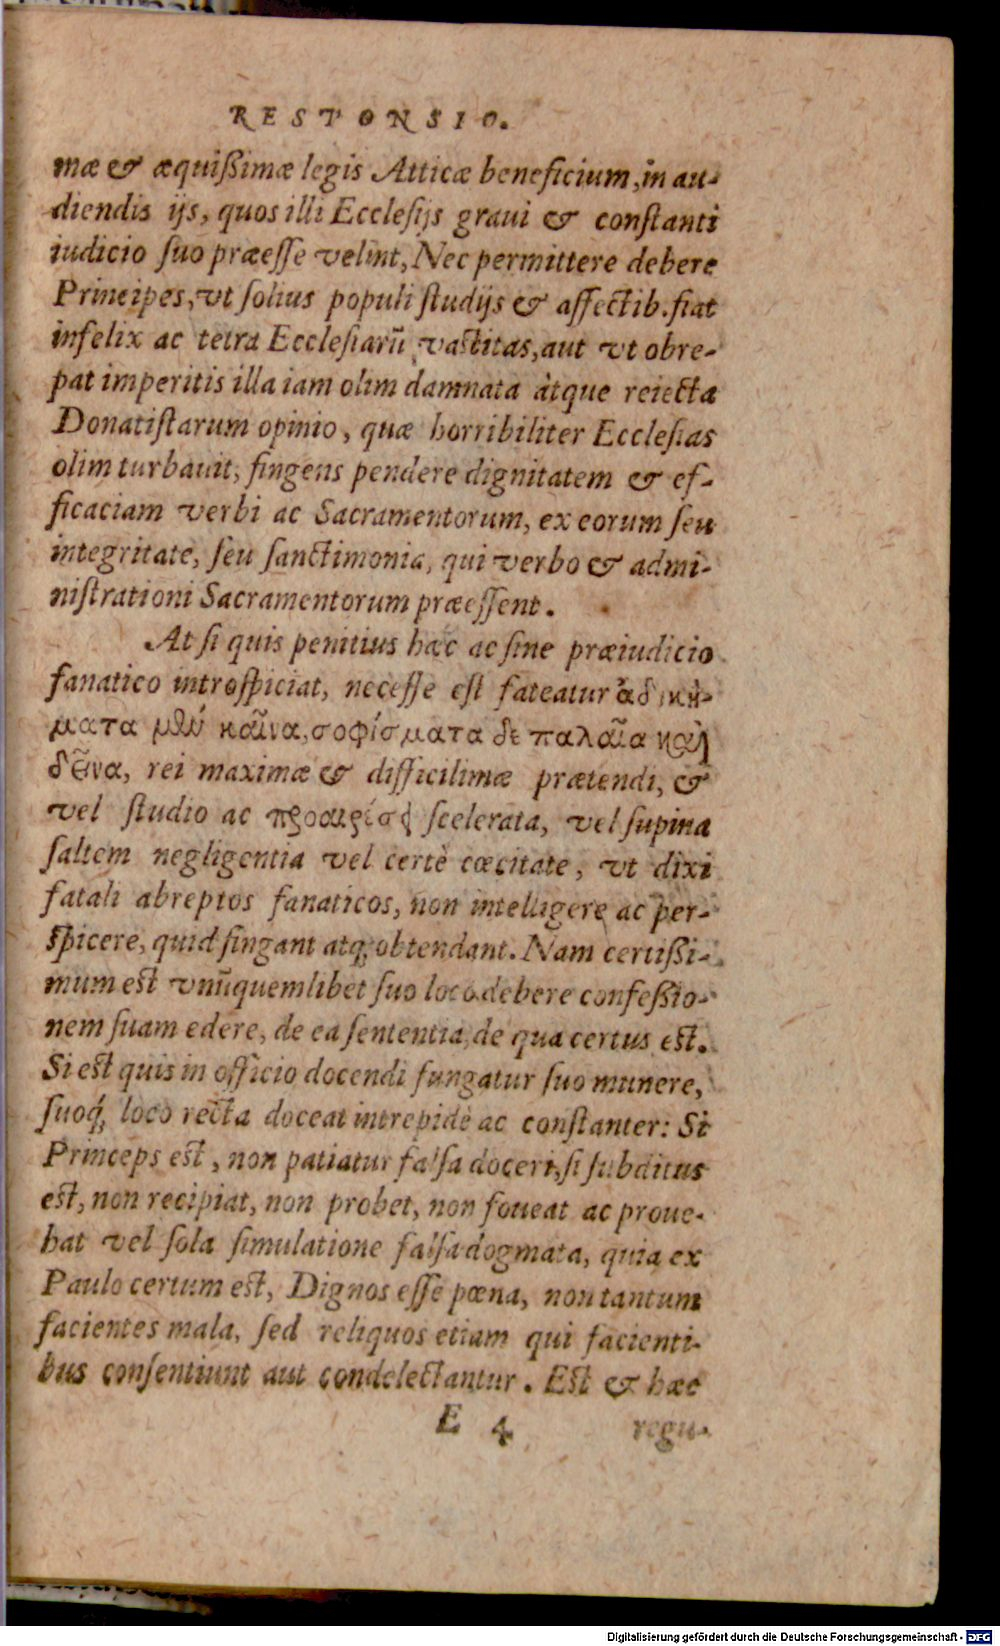 RESPONSIO.
mæ & æquißimæ legis Atticæ beneficium, in au-
diendis ijs, quos illi Ecclesijs graui & constanti
iudicio suo præesse velint, Nec permittere debere
Principes, vt solius populi studijs & affectib. fiat
infelix ac tetra Ecclesiarũ vastitas, aut vt obre-
pat imperitis illa iam olim damnata atque reiecta
Donatistarum opinio, quæ horribiliter Ecclesias
olim turbauit, fingens pendere dignitatem & ef-
ficaciam verbi ac Sacramentorum, ex eorum seu
integritate, seu sanctimonia, qui verbo & admi-
nistrationi Sacramentorum præessent.
At si quis penitius hæc ac sine præiudicio
fanatico introspiciat, necesse est fateatur ἀδική-
ματα μὲν καῖνα, σοφίσματα δε παλαῖα καὶ
δεῖνα, rei maximæ & difficilimæ prætendi, &
vel studio ac προαιρέσει scelerata, vel supina
saltem negligentia vel certè cœcitate, vt dixi
fatali abreptos fanaticos, non intelligere ac per-
spicere, quid fingant atq; obtendant. Nam certißi-
mum est vnũquemlibet suo loco debere confeßio-
nem suam edere, de ea sententia, de qua certus est.
Si est quis in officio docendi fungatur suo munere,
suoq́; loco recta doceat intrepidè ac constanter: Si
Princeps est, non patiatur falsa doceri, si subditus
est, non recipiat, non probet, non foueat ac proue-
hat vel sola simulatione falsa dogmata, quia ex
Paulo certum est, Dignos esse pœna, non tantum
facientes mala, sed reliquos etiam qui facienti-
bus consentiunt aut condelectantur. Est & hæc
E 4 regu-
Digitalisierung gefördert durch die Deutsche Forschungsgemeinschaft - DFG